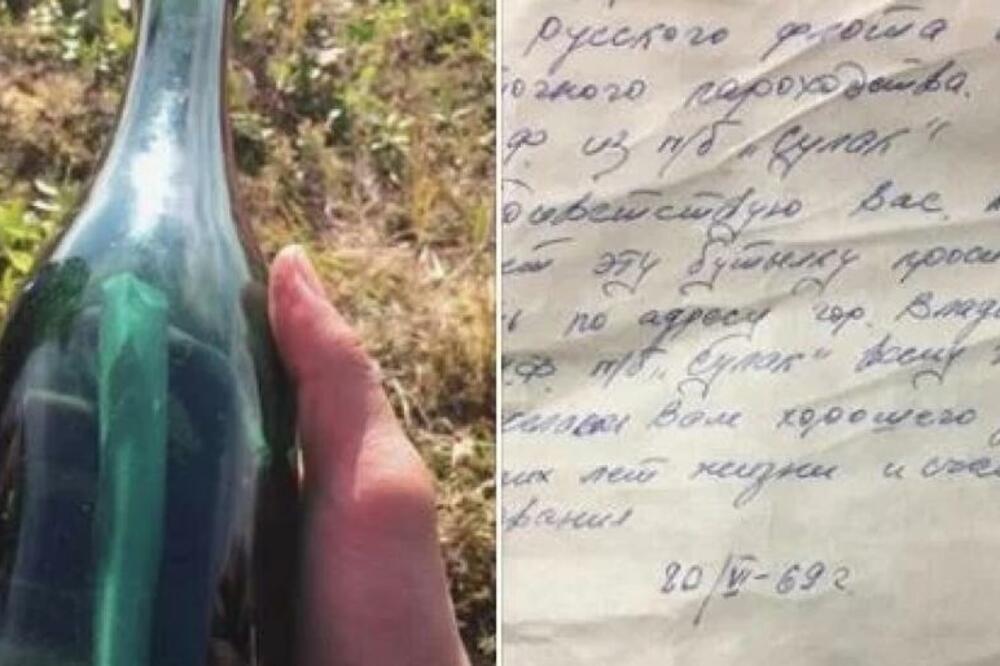 Русского флота
точного пароходства.
Ф. из п/б „Сулак"
ветствую Вас,
ет эту бутылку проси
ь по адресу гор. Влади
.Ф. п/б „Сулак" всему
Вам хорошего
их лет жизни и счас
вания
20/VI-69г